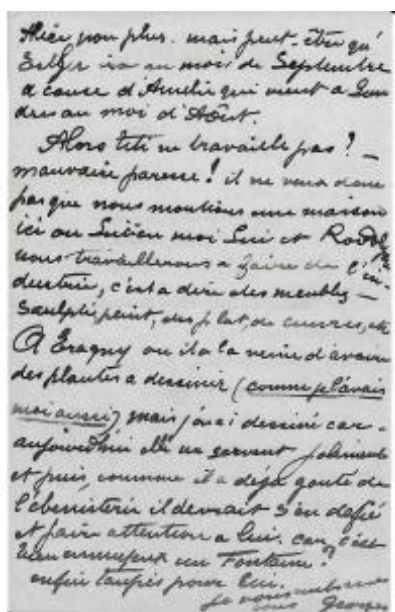 Alice non plus. mais peut-être qu'
Esther ira au mois de Septembre
a cause d'Amélie qui vient a Lon
dres au moi d'Août.
Alors titi ne travaille pas? —
mauvaise paresse! il ne veux donc
pas que nous montions une maison
ici ou Lucien moi Lui et Rodol
nous travaillerons a faire de l'in-
dustrie, c'est a dire des meubles —
Sculpté peint, des plat, de cuivres, etc
A Eragny ou il a la veine d'avoir
des plantes a dessiner (comme je l'avais
moi aussi) mais j'ai dessiné car
aujourd'hui elle me servent joliment
et puis, comme il a déja gouté de
l'ébenisterie il devrait s'en défié
et faire attention a lui. car c'est
bien ennuyeux un Fontaine!
enfin tanpis pour lui.
Je vous embrasse
Georges